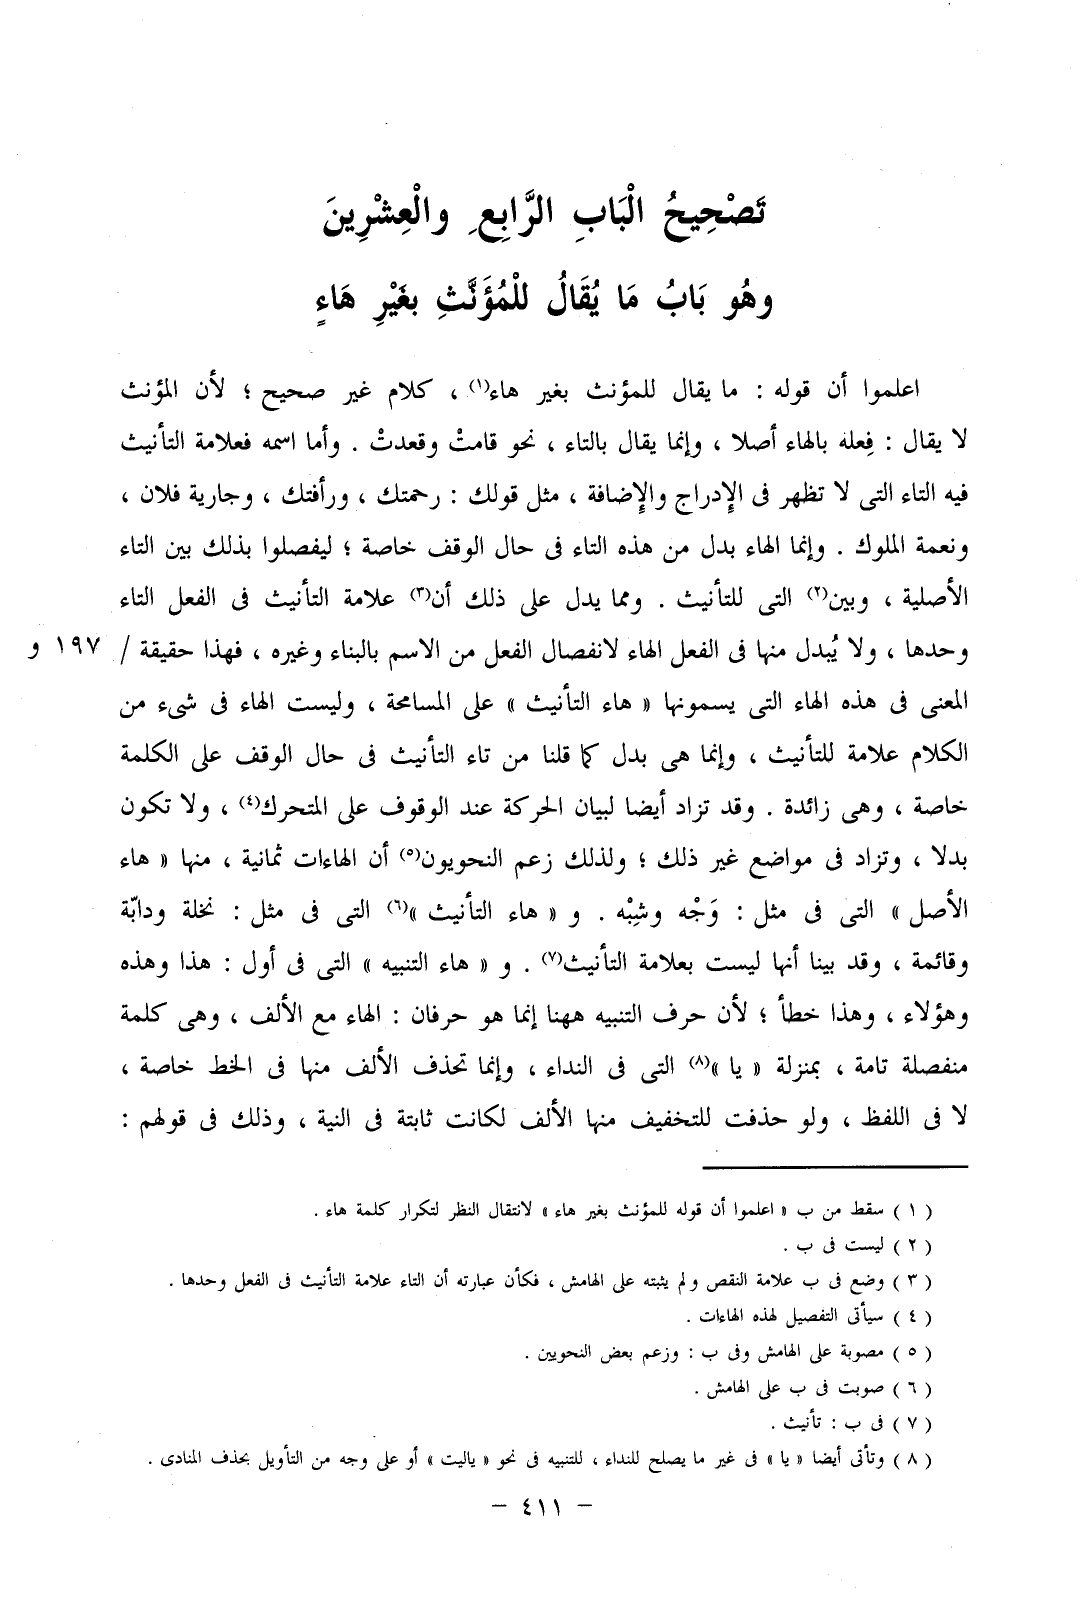 تَصْحِيحُ الْبَابِ الرَّابِعِ والْعِشْرِينَ
وهُو بَابُ مَا يُقَالُ للْمُؤَنَّثِ بغَيْرِ هَاءٍ
اعلموا أن قوله : ما يقال للمؤنث بغير هاء(١) ، كلام غير صحيح ؛ لأن المؤنث
لا يقال : فِعله بالهاء أصلا ، وإنما يقال بالتاء ، نحو قامتْ وقعدتْ . وأما اسمه فعلامة التأنيث
فيه التاء التى لا تظهر فى الإدراج والإضافة ، مثل قولك : رحمتك ، ورأفتك ، وجارية فلان ،
ونعمة الملوك . وإنما الهاء بدل من هذه التاء فى حال الوقف خاصة ؛ ليفصلوا بذلك بين التاء
الأصلية ، وبين(٢) التى للتأنيث . ومما يدل على ذلك أن(٣) علامة التأنيث فى الفعل التاء
وحدها ، ولا يُبدل منها فى الفعل الهاء لانفصال الفعل من الاسم بالبناء وغيره ، فهذا حقيقة / ١٩٧ و
المعنى فى هذه الهاء التى يسمونها « هاء التأنيث » على المسامحة ، وليست الهاء فى شىء من
الكلام علامة للتأنيث ، وإنما هى بدل كما قلنا من تاء التأنيث فى حال الوقف على الكلمة
خاصة ، وهى زائدة . وقد تزاد أيضا لبيان الحركة عند الوقوف على المتحرك(٤) ، ولا تكون
بدلا ، وتزاد فى مواضع غير ذلك ؛ ولذلك زعم النحويون(٥) أن الهاءات ثمانية ، منها « هاء
الأصل » التى فى مثل : وَجْه وشِبْه . و « هاء التأنيث »(٦) التى فى مثل : نخلة ودابّة
وقائمة ، وقد بينا أنها ليست بعلامة التأنيث(٧) . و « هاء التنبيه » التى فى أول : هذا وهذه
وهؤلاء ، وهذا خطأ ؛ لأن حرف التنبيه ههنا إنما هو حرفان : الهاء مع الألف ، وهى كلمة
منفصلة تامة ، بمنزلة « يا »(٨) التى فى النداء ، وإنما تحذف الألف منها فى الخط خاصة ،
لا فى اللفظ ، ولو حذفت للتخفيف منها الألف لكانت ثابتة فى النية ، وذلك فى قولهم :
( ١ ) سقط من ب « اعلموا أن قوله للمؤنث بغير هاء » لانتقال النظر لتكرار كلمة هاء .
( ٢ ) ليست فى ب .
( ٣ ) وضع فى ب علامة النقص ولم يثبته على الهامش ، فكأن عبارته أن التاء علامة التأنيث فى الفعل وحدها .
( ٤ ) سيأتى التفصيل لهذه الهاءات .
( ٥ ) مصوبة على الهامش وفى ب : وزعم بعض النحويين .
( ٦ ) صوبت فى ب على الهامش .
( ٧ ) فى ب : تأنيث .
( ٨ ) وتأتى أيضا « يا » فى غير ما يصلح للنداء ، للتنبيه فى نحو « ياليت » أو على وجه من التأويل بحذف المنادى .
– ٤١١ –